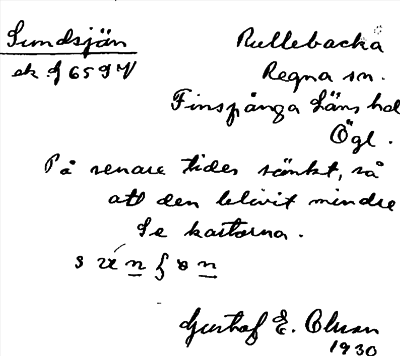 Sundsjön
Rullebacka
ek J 65 9 V
Regna sn.
Finspånga läns hd
Ögl.
På senare tider sänkt, så
att den blivit mindre
Se kartorna.
Gustaf E. Olsson
1930